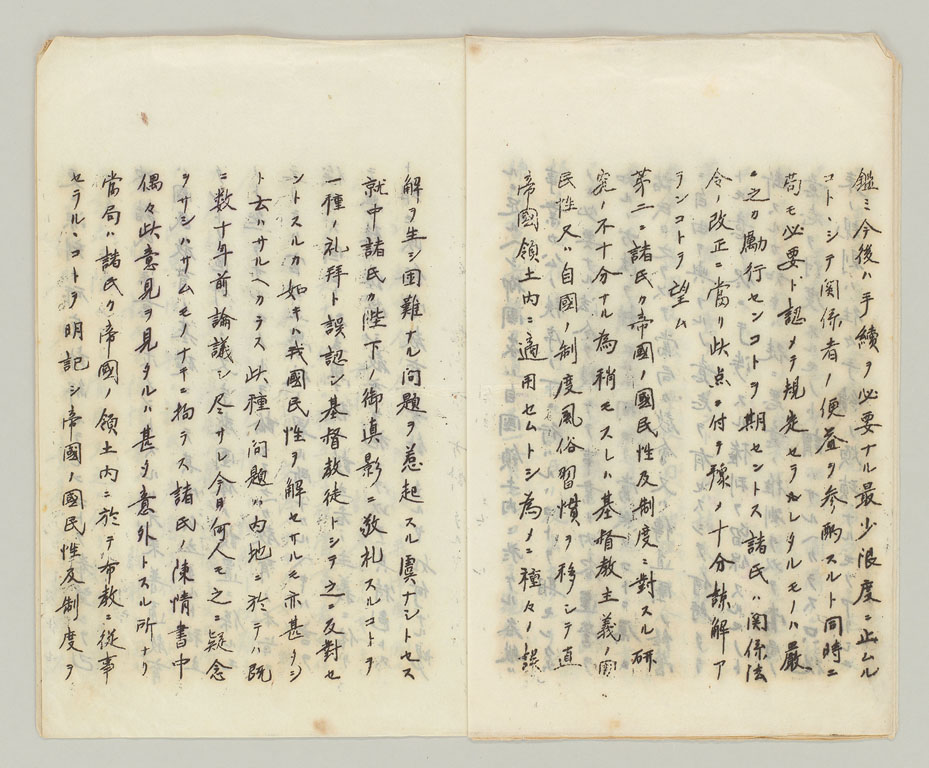 鑑ミ今後ハ手續ヲ必要ナル最少限度ニ止ムル
コトヽシテ関係者ノ便益ヲ参酌スルト同時ニ
苟モ必要ト認メテ規定セラレタルモノハ嚴
ニ之カ勵行センコトヲ期セントス諸氏ハ関係法
令ノ改正ニ當リ此点ニ付テ豫メ十分諒解ア
ランコトヲ望ム
第二ニ諸氏ク帝國ノ國民性及制度ニ對スル研
究ノ不十分ナル為稍モスレハ基督教主義ノ
民性又ハ自國ノ制度風俗習慣ヲ移シテ直
帝國領土内ニ適用セムトシ為メニ種々ノ誤
解ヲ生シ困難ナル问題ヲ惹起スル虞ナシトセス
就中諸氏カ陛下ノ御真影ニ敬礼スルコトヲ
一種ノ礼拝ト誤認シ基督教徒トシテ之ニ反對セ
ントスルカ如キハ我國民性ヲ解セサルモ亦甚タシ
ト云ハサルヘカラス此種ノ问題ハ内地ニ於テハ既
ニ数十年前論議シ尽サレ今日何人モ之ニ疑念
ヲサシハサムモノナキニ拘ラス諸氏ノ陳情書中
偶々此意見ヲ見タルハ甚タ意外トスル所ナリ
當局ハ諸氏ク帝國ノ領土内ニ於テ布教ニ從事
セラルヽコトヲ明記シ帝國ノ國民性及制度ヲ